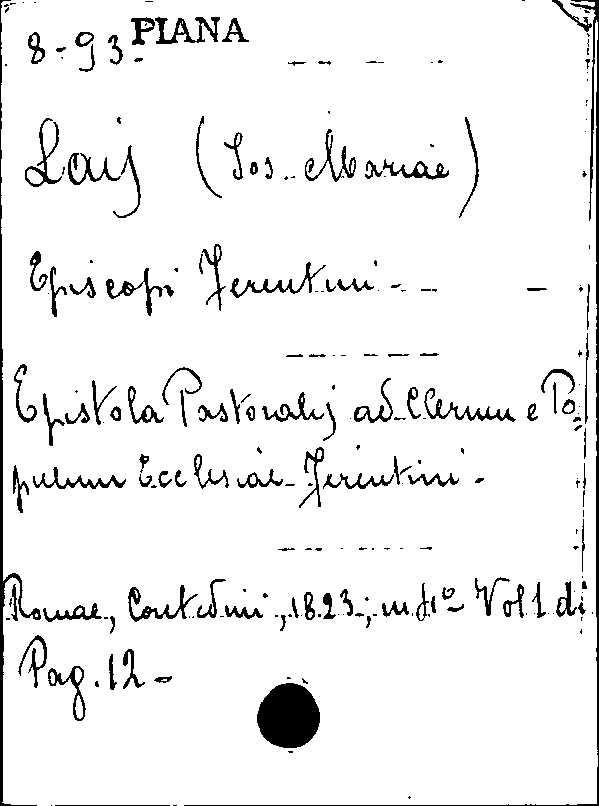 8-93 PIANA
Laij (Jos. Mariae)
Episcopi Ferentini -
Epistola Pastoralis ad Clerum e Po=
pulum Ecclesiae Ferentini -
Romae, Contedini, 1823, in f.o Vol 1 di
Pag. 12 -